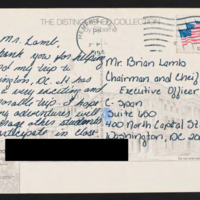 THE DISTINCTIVE COLLECTION
by pabama
Mr. Lamb,
Thank you for helping
fund my trip to
Washington, DC. It has
been a very exciting and
memorable trip. I hope
my adventures will
encourage other students
participate in close
Mr. Brian Lamb
Chairman and Chief
Executive Officer
C-Span
Suite 650
400 North Capital St
Washington, DC 20